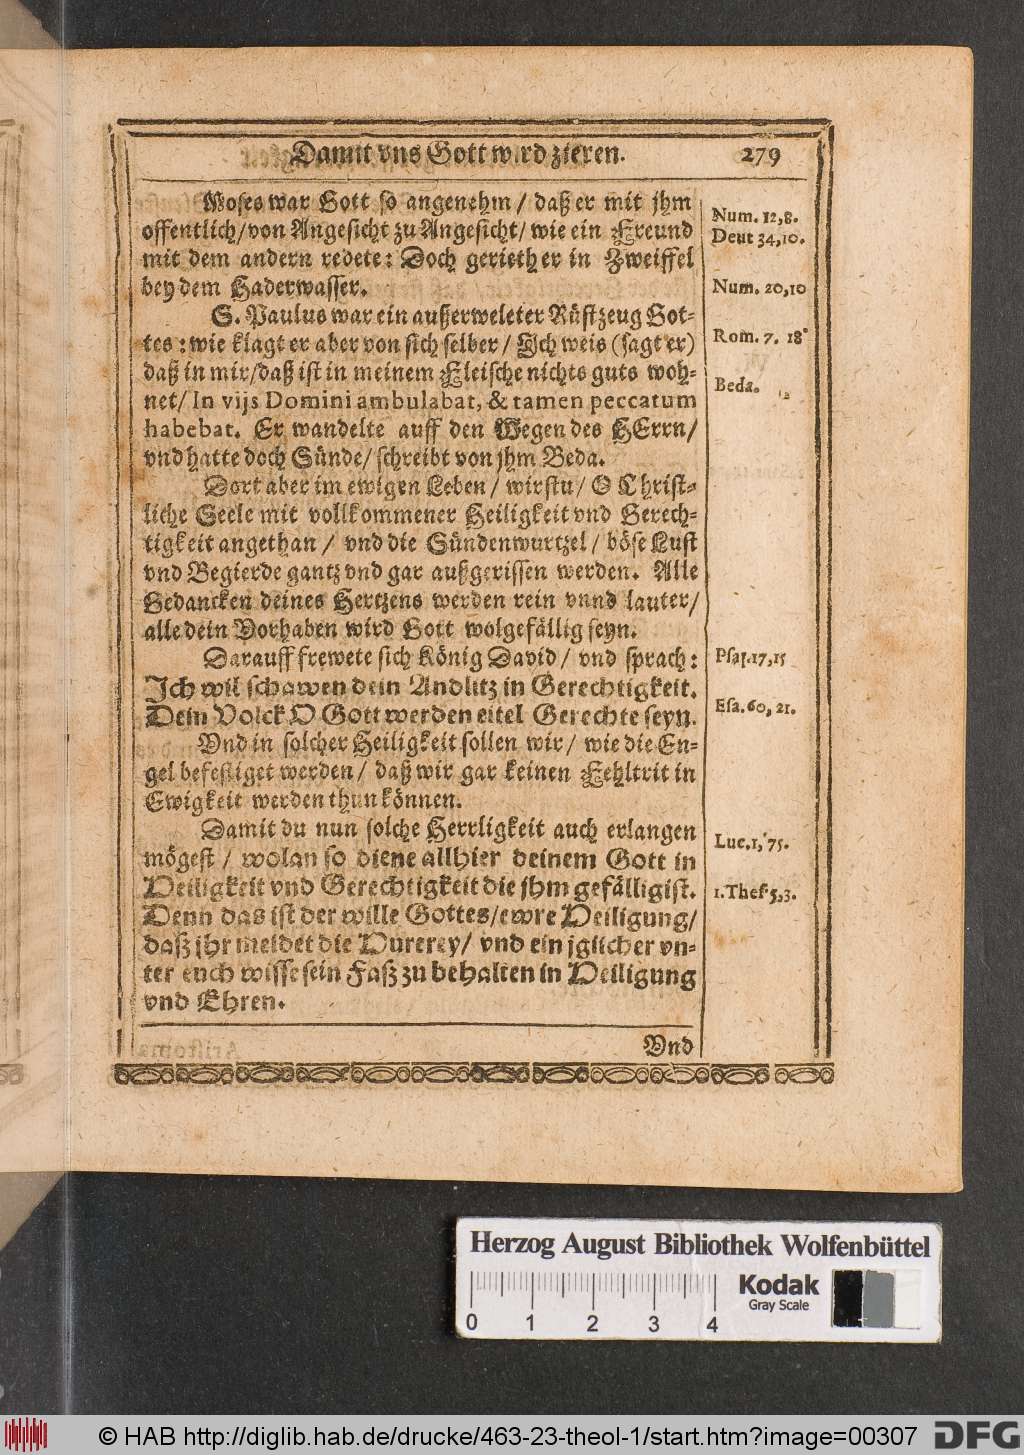 Damit vns Gott wird zieren. 279
Moses war Gott so angenehm / daß er mit jhm
offentlich/von Angesicht zu Angesicht/ wie ein Freund
mit dem andern redete: Doch gerieth er in Zweiffel
bey dem Haderwasser.
S. Paulus war ein außerweleter Rüstzeug Got-
tes: wie klagt er aber von sich selber / Jch weis (sagt er)
daß in mir/daß ist in meinem Fleische nichts guts woh-
net/ In vijs Domini ambulabat, & tamen peccatum
habebat. Er wandelte auff den Wegen des HErrn/
vnd hatte doch Sünde/ schreibt von jhm Beda.
Dort aber im ewigen Leben / wirstu/ O Christ-
liche Seele mit vollkommener Heiligkeit vnd Gerech-
tigkeit angethan / vnd die Sündenwurtzel / böse Lust
vnd Begierde gantz vnd gar außgerissen werden. Alle
Gedancken deines Hertzens werden rein vnnd lauter/
alle dein Vorhaben wird Gott wolgefällig seyn.
Darauff frewete sich König David / vnd sprach:
Jch wil schawen dein Andlitz in Gerechtigkeit.
Dein Volck O Gott werden eitel Gerechte seyn.
Vnd in solcher Heiligkeit sollen wir / wie die En-
gel befestiget werden / daß wir gar keinen Fehltrit in
Ewigkeit werden thun können.
Damit du nun solche Herrligkeit auch erlangen
mögest / wolan so diene allhier deinem Gott in
Heiligkeit vnd Gerechtigkeit die jhm gefälligist.
Denn das ist der wille Gottes/ewre Heiligung/
daß jhr meidet die Hurerey/ vnd ein jglicher vn-
ter euch wisse sein Faß zu behalten in Heiligung
vnd Ehren.
Vnd
Num. 12,8.
Deut 34,10.
Num. 20,10
Rom. 7. 18
Beda.
Psal.17,15
Esa. 60, 21.
Luc.1, 75.
1.Thes.5,3.
Herzog August Bibliothek Wolfenbüttel
0 1 2 3 4
Kodak
Gray Scale
© HAB http://diglib.hab.de/drucke/463-23-theol-1/start.htm?image=00307
DFG